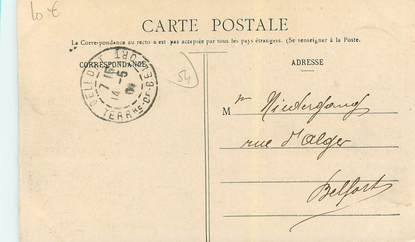 10 €
CARTE POSTALE
La Correspondance au recto n'est pas acceptée par tous les pays étrangers. (Se renseigner à la Poste.
CORRESPONDANCE
ADRESSE
BELFORT
14 -5
TERRRE-DE-BELFORT
54
M me Niedergang
rue d'Alger
Belfort